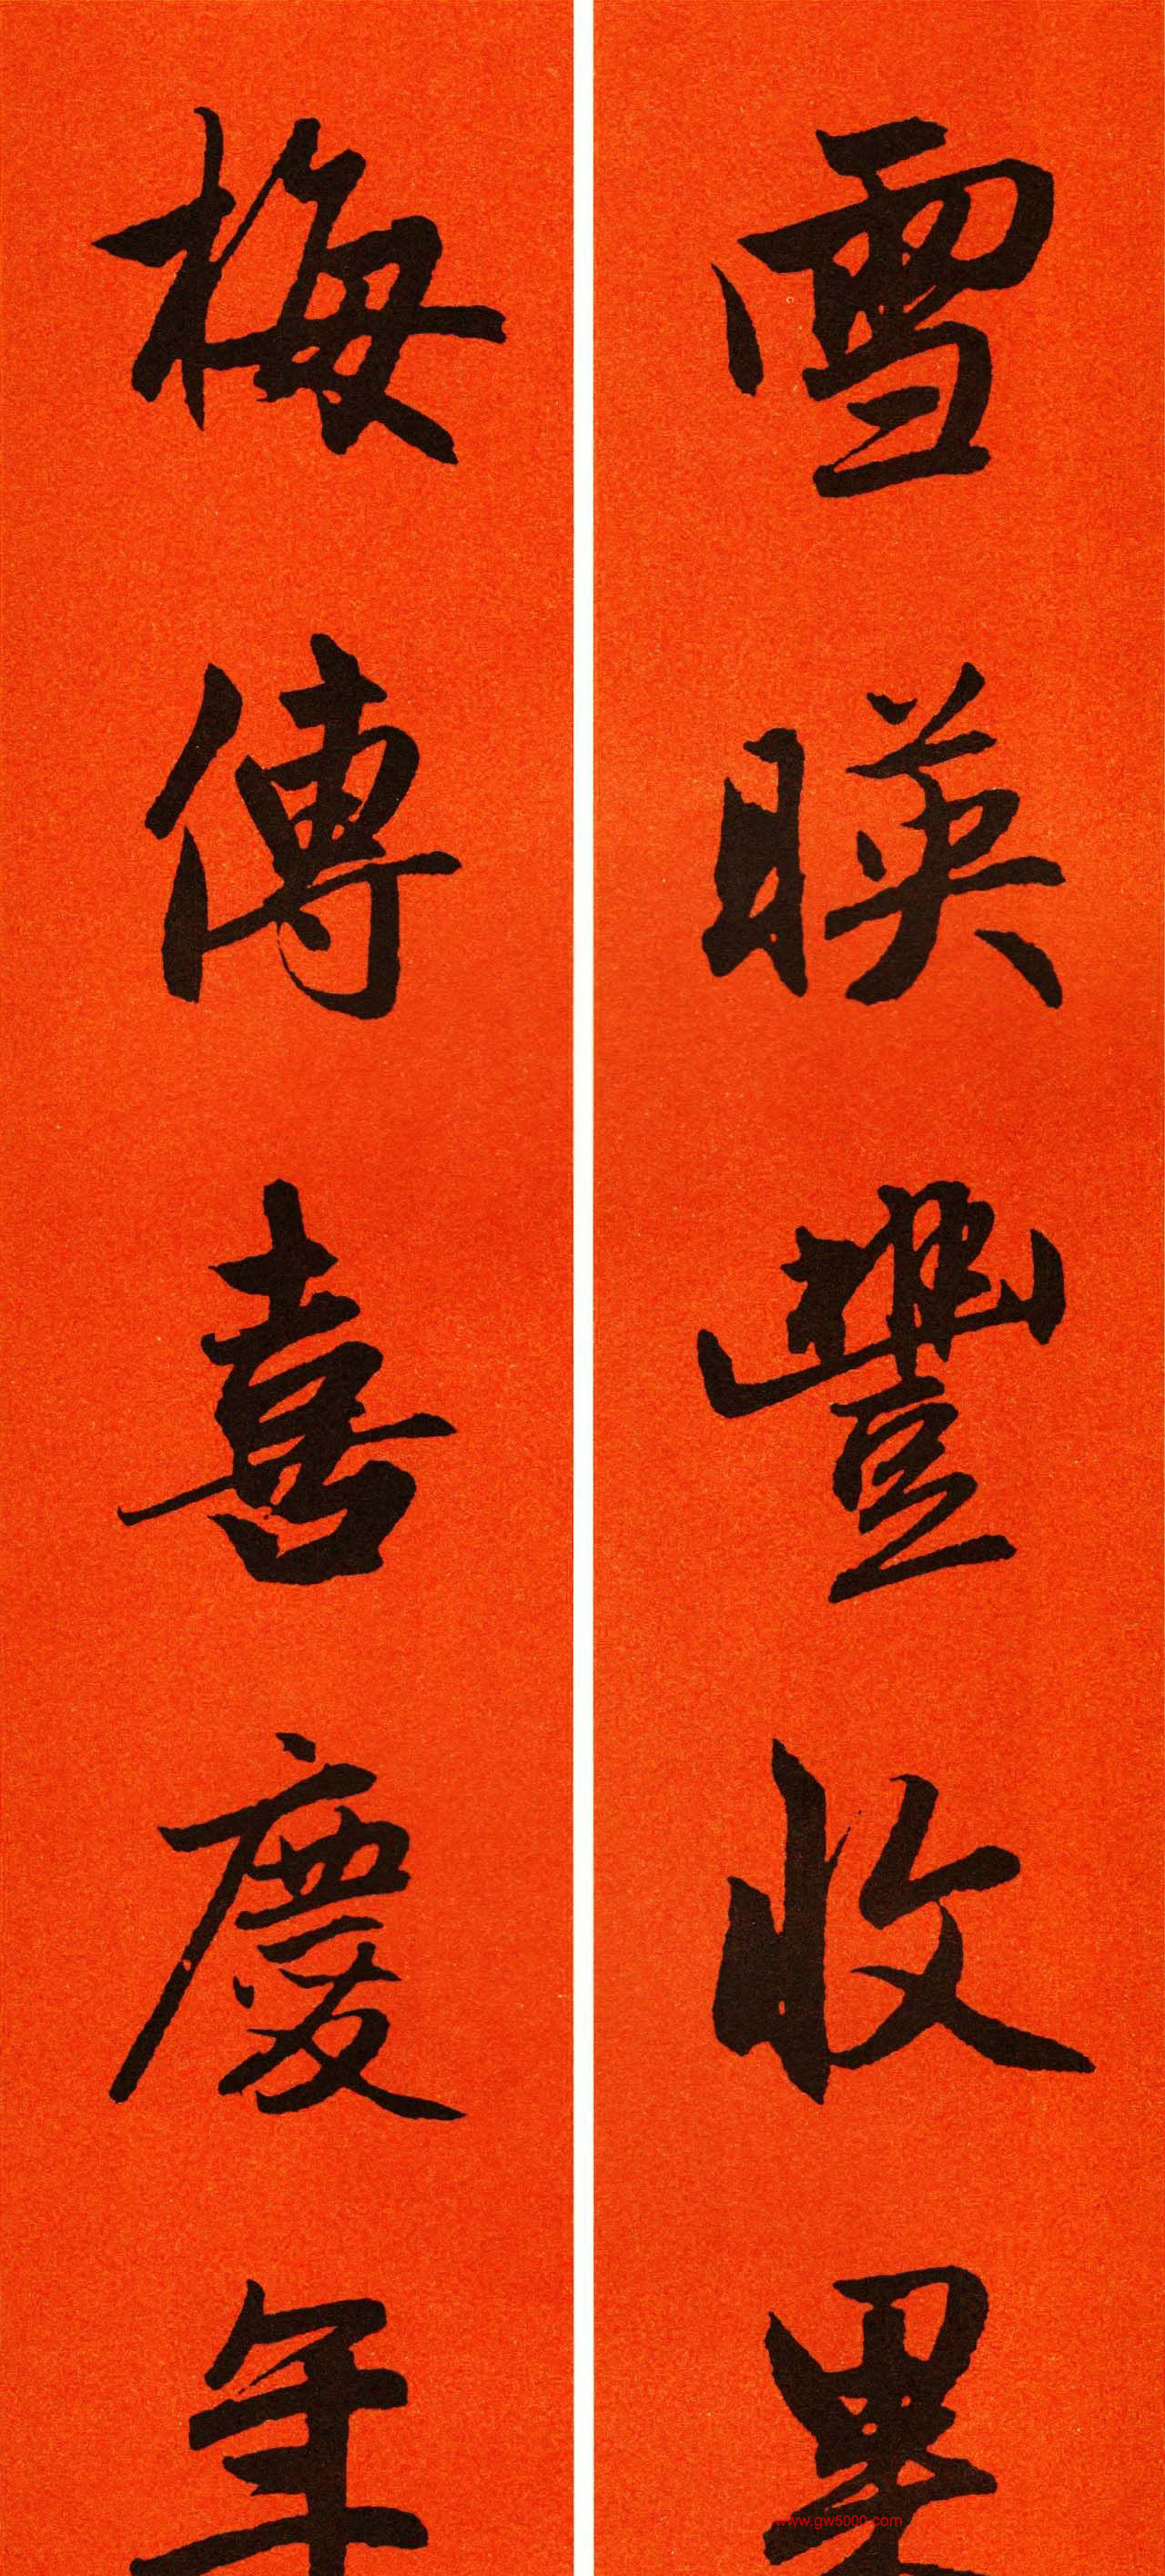 雪暎豐收
梅傳喜慶年
www.gw5000.com